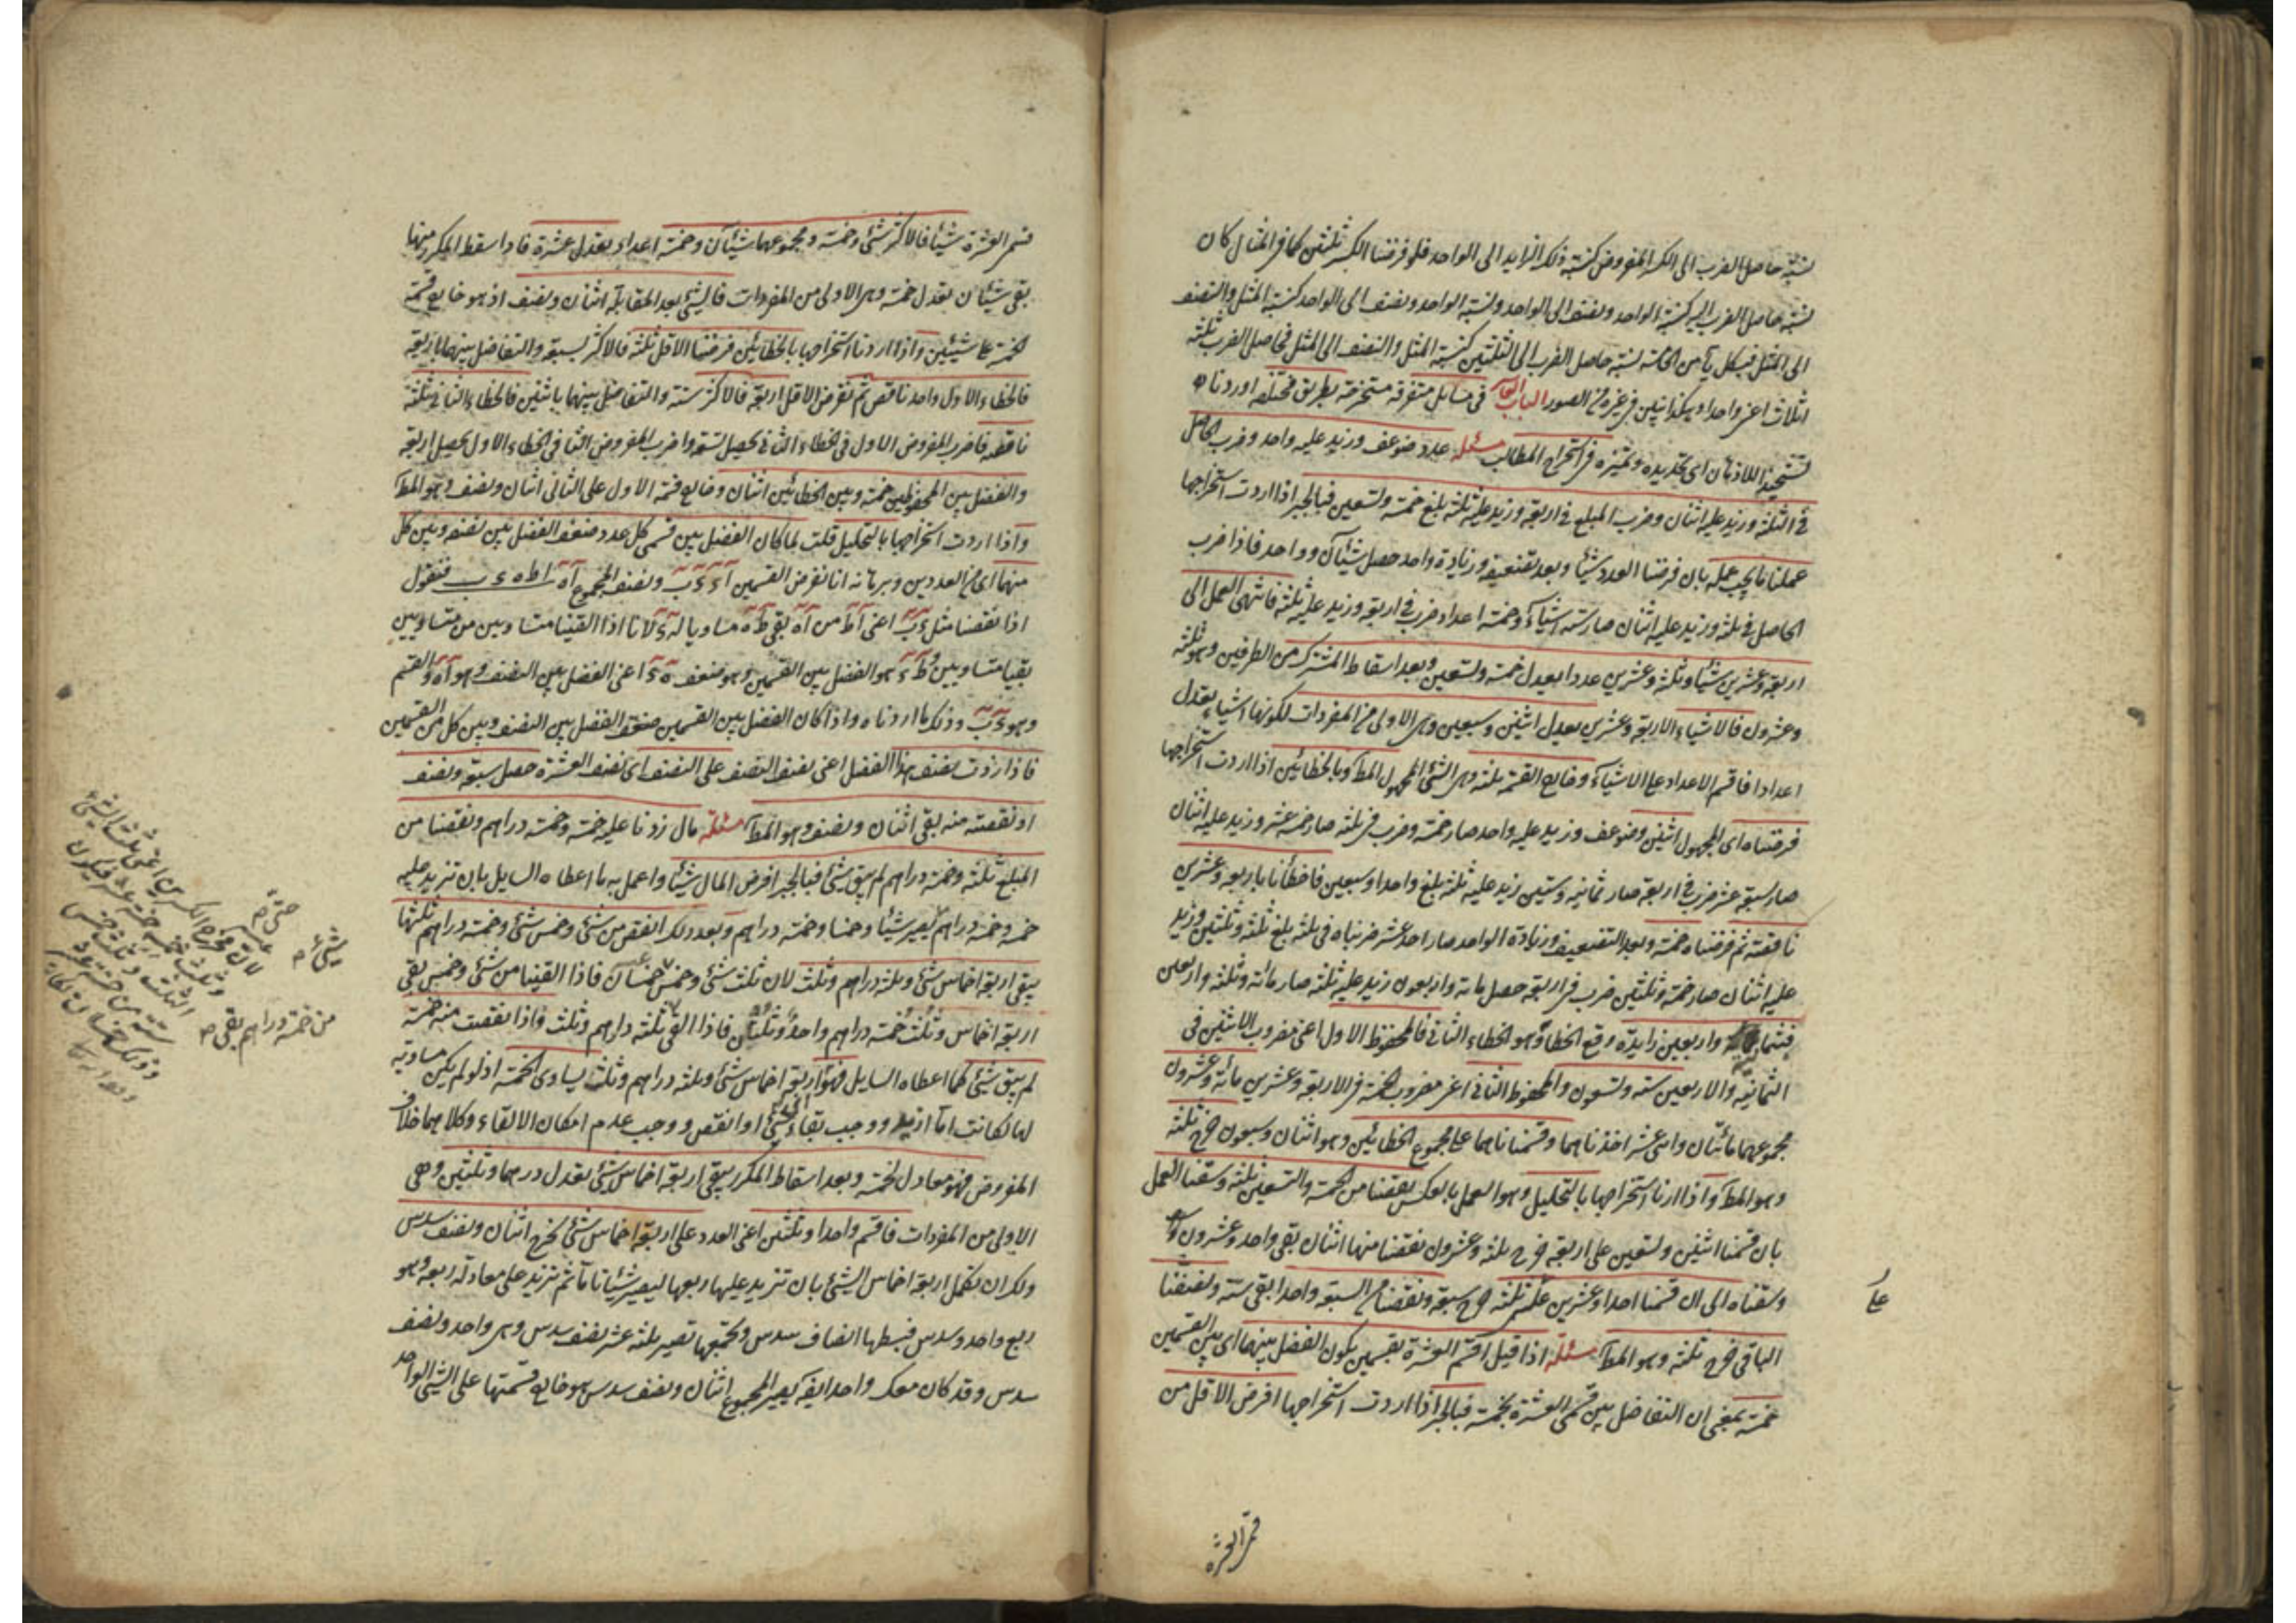 نسبة حاصل الضرب الى الكسر المفروض كنسبة ذلك الزايد الى الواحد فلو فرضنا الكسر ثلثين كما فى المثال كان
نسبة حاصل الضرب اليه كنسبة الواحد ونصف الى الواحد ونسبة الواحد ونصف الى الواحد كنسبة المثل والنصف
الى المثل نسبة حاصل الضرب الى الثلثين كنسبة المثل والنصف الى المثل فحاصل الضرب ثلثة
اثلاث اعنى واحدا وهكذا يتبين فى غيره من الصور الباب فى مسايل متفرقة مستخرجة بطريق مختلفة اوردناه
تشحيذا للاذهان اى تحديده وتميزه فى استخراج المطالب مسئلة عدد ضوعف وزيد عليه واحد وضرب الحاصل
فى الثلثة وزيد عليه اثنان وضرب المبلغ فى اربعة وزيد عليه ثلثة بلغ خمسة وتسعين فبالجبر اذا اردت استخراجها
عملنا ما يجب عمله بان فرضنا العدد شيئا وبعد تضعيفه وزيادة واحد حصل شيئان وواحد فاذا ضرب
الحاصل فى ثلثة وزيد عليه اثنان صار ستة اشياء وخمسة اعداد ضرب فى اربعة وزيد عليه ثلثة فانتهى العمل الى
اربعة وعشرين شيئا وثلثة وعشرين عددا يعدل خمسة وتسعين وبعد اسقاط المشترك من الطرفين وهو ثلثة
وعشرون فالاشياء الاربعة وعشرين يعدل اثنين وسبعين وهى الاولى من المفردات لكونها اشياء يعدل
اعدادا فاقسم الاعداد على الاشياء وخارج القسمة ثلثة وهى الشئ المجهول المط وبالخطائين اذا اردت استخراجها
فرضناه اى المجهول اثنين وضوعف وزيد عليه واحد صار خمسة وضرب فى ثلثة صار خمسة عشر وزيد عليه اثنان
صار سبعة عشر ضرب فى اربعة صار ثمانية وستين زيد عليه ثلثة بلغ واحدا وسبعين فاخطأنا باربعة وعشرين
ناقصة ثم فرضناه خمسة وبعد التضعيف وزيادة الواحد صار احد عشر ضربناه فى ثلثة بلغ ثلثة وثلثين وزيد
عليه اثنان صار خمسة وثلثين ضرب فى اربعة حصل مائة واربعون زيد عليه ثلثة صار مائة وثلثة واربعين
واربعين زايدة وقع الخطأ وهو الخطاء الثانى فالمحفوظ الاول اعنى مضروب الاثنين فى
الثمانية والاربعين ستة وتسعون والمحفوظ الثانى اعنى مضروب الخمسة فى الاربعة وعشرين مائة وعشرون
مجموعهما مائتان وستة عشر اخذناهما وقسمناهما على مجموع الخطائين وهو اثنان وسبعون خرج ثلثة
وهو المط واذا اردنا استخراجها بالتحليل وهو العمل بالعكس نقصنا من الخمسة والتسعين ثلثة وسقنا العمل
بان قسمنا اثنين وتسعين على اربعة خرج ثلثة وعشرون نقصنا منها اثنان بقى واحد وعشرون
وسقناه الى ان قسمنا احدا وعشرين على ثلثة خرج سبعة ونقصنا من السبعة واحدا بقى ستة ونصفنا
الباقى خرج ثلثة وهو المط مسئلة اذا قيل اقسم العشرة بقسمين يكون الفضل بينهما اى بين القسمين
خمسة بمعنى ان التفاضل بين قسمى العشرة بخمسة فبالجبر اذا اردت استخراجها افرض الاقل من
على
قسم العشرة شيئا فالاكثر شئ وخمسة ومجموعهما شيئان وخمسة اعداد يعدل عشرة فاذا سقط المكرر منها
بقى شيئان يعدل خمسة وهى الاولى من المفردات فالشئ بعد المقابلة اثنان ونصف اذ هو خارج قسمة
الخمسة على شيئين واذا اردنا استخراجها بالخطائين فرضنا الاقل ثلثة فالاكثر سبعة والتفاضل بينهما باربعة
فالخطاء الاول واحد ناقص ثم نفرض الاقل اربعة فالاكثر ستة والتفاضل بينهما باثنين فالخطاء الثانى ثلثة
ناقصة فاضرب المفروض الاول فى الخطاء الثانى يحصل تسعة واضرب المفروض الثانى فى الخطاء الاول يحصل اربعة
والفضل بين المحفوظين خمسة وبين الخطائين اثنان وخارج قسمة الاول على الثانى اثنان ونصف وهو المط
واذا اردت استخراجها بالتحليل قلت لما كان الفضل بين قسمى كل عدد ضعف الفضل بين نصفه وبين كل
منهما اى من العددين وبرهانه انا نفرض القسمين ونصف المجموع اه ا ط ه ء ب فنقول
اذا نقصنا مثل ءب اعنى اط من اه بقى طه مساويا له ء لانا اذا القينا متساويين من متساويين
بقيا متساويين وطء هو الفضل بين القسمين وهو ضعف هء اعنى الفضل بين النصف وهو اه والقسم
وهو ءب وذلك ما اردناه واذا كان الفضل بين القسمين ضعف الفضل بين النصف وبين كل من القسمين
فاذا زدت نصف هذا الفضل اعنى نصف النصف على النصف اى نصف العشرة حصل سبعة ونصف
او نقصته منه بقى اثنان ونصف وهو المط مسئلة مال زدنا عليه خمسه وخمسة دراهم ونقصنا من
المبلغ ثلثه وخمسة دراهم لم يبق شئ فبالجبر افرض المال شيئا واعمل به ما اعطاه السايل بان تزيد عليه
خمسه وخمسة دراهم يصير شيئا وخمسا وخمسة دراهم وبعد ذلك انقص من شئ وخمس شئ وخمسة دراهم ثلثها
يبقى اربعة اخماس شئ وثلثة دراهم وثلث لان ثلث شئ وخمس خمسان فاذا القينا من شئ وخمس بقى
اربعة اخماس وثلث خمسة دراهم واحد وثلثان فاذا القى ثلثة دراهم وثلث فاذا نقصت منه خمسة
لم يبق شئ كما اعطاه السايل فهو اربعة اخماس شئ وثلثة دراهم وثلث يساوى الخمسة اذ لو لم يكن مساوية
لها لكانت اما ازيد ووجب بقاء شئ او انقص ووجب عدم امكان الالقاء وكلاهما خلاف
المفروض فهو معادل لخمسة وبعد اسقاط المكرر يبقى اربعة اخماس شئ يعدل درهما وثلثين وهى
الاولى من المفردات فاقسم واحدا وثلثين اعنى العدد على اربعة اخماس شئ يخرج اثنان ونصف سدس
ولك ان تكمل اربعة اخماس الشئ بان تزيد عليها ربعها ليصير شيئا تاما ثم تزيد على معادله ربعه وهو
ربع واحد وسدس فبسطها انصاف سدس وتجمعها تصير ثلثة عشر نصف سدس وهى واحد ونصف
سدس وقد كان معك واحد ايضا يصير المجموع اثنان ونصف سدس هو خارج قسمتها على الشئ الواحد
شئ صح
من خمسة دراهم بقى صح